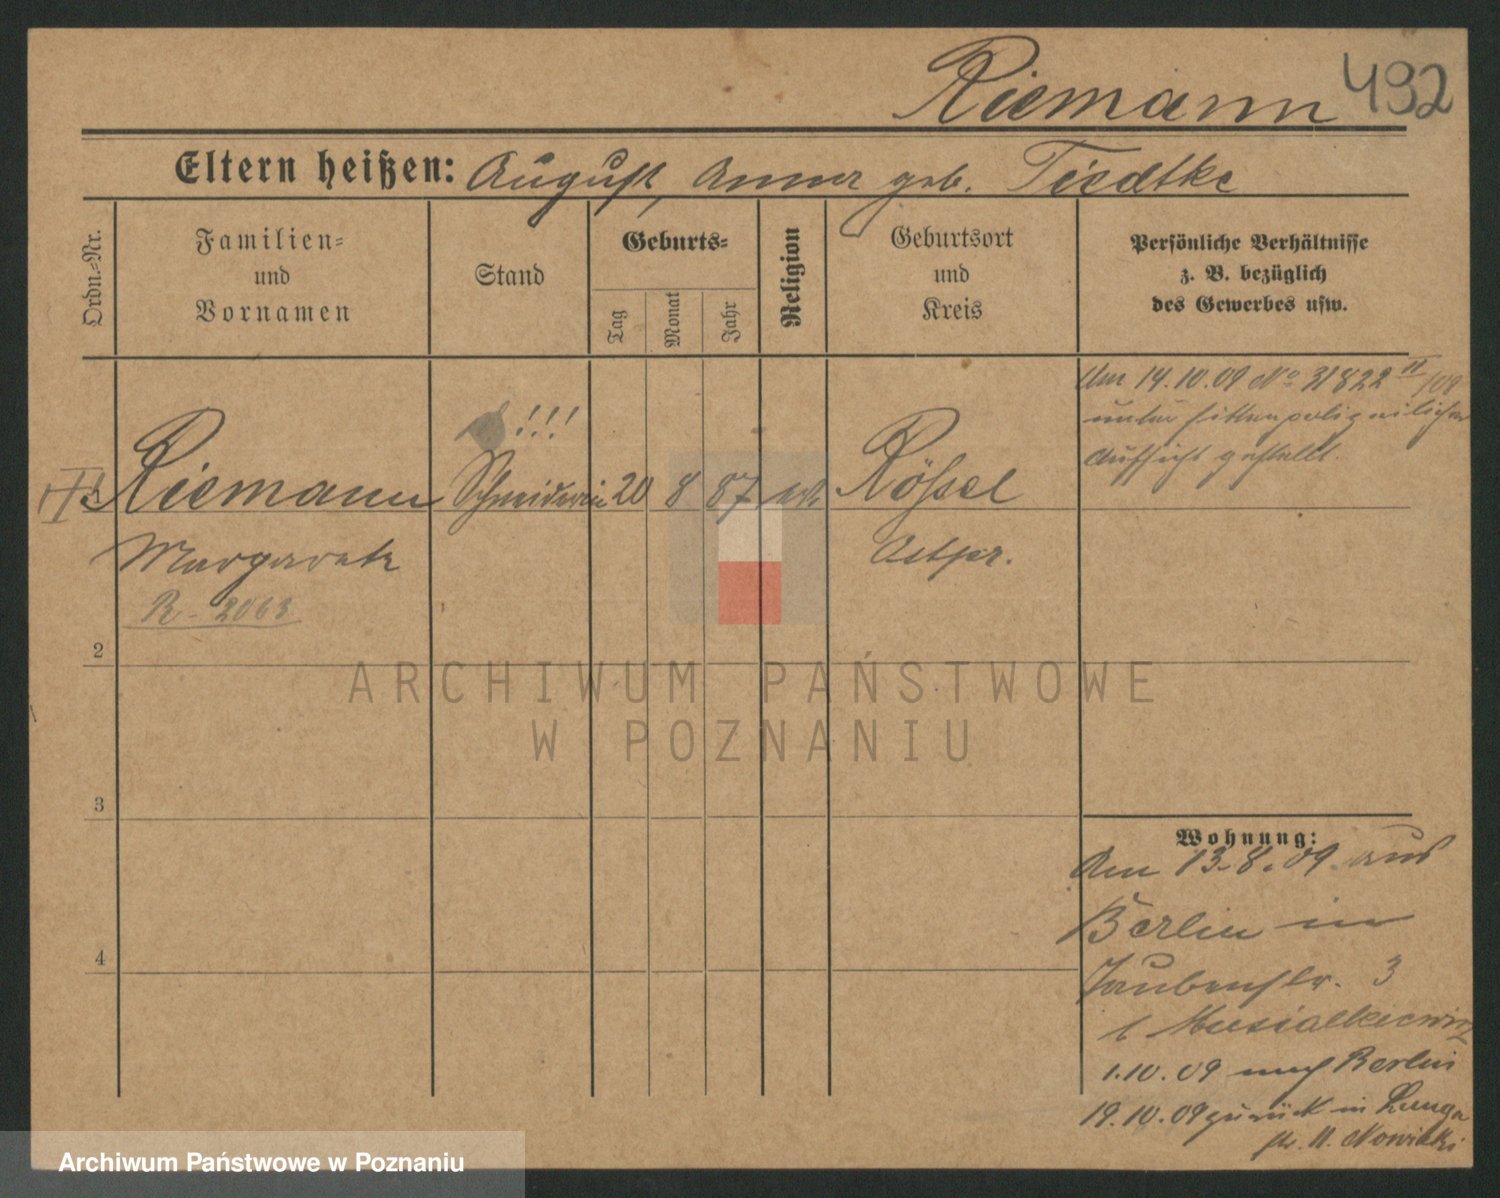 Riemann 492
Eltern heißen: August, Anna geb. Tiedtke
Ordn.-Nr.
Familien-
und
Vornamen
Stand
Geburts-
Tag
Monat
Jahr
Religion
Geburtsort
und
Kreis
Persönliche Verhältnisse
z. B. bezüglich
des Gewerbes usw.
Am 14.10.09 No 31822 II/09
unter sittenpolizeilicher
Aufsicht gestellt.
!!!
Riemann Schneiderin 20 8 87 Rössel
Margarete Ostpr.
R - 2063
2
3
4
ARCHIWUM PAŃSTWOWE
W POZNANIU
Wohnung:
Am 13.8.09. aus
Berlin in
Taubenstr. 3
b Musialkiewicz
1.10.09 nach Berlin
19.10.09 zurück in Lange
str. 11. Nowicki
Archiwum Państwowe w Poznaniu